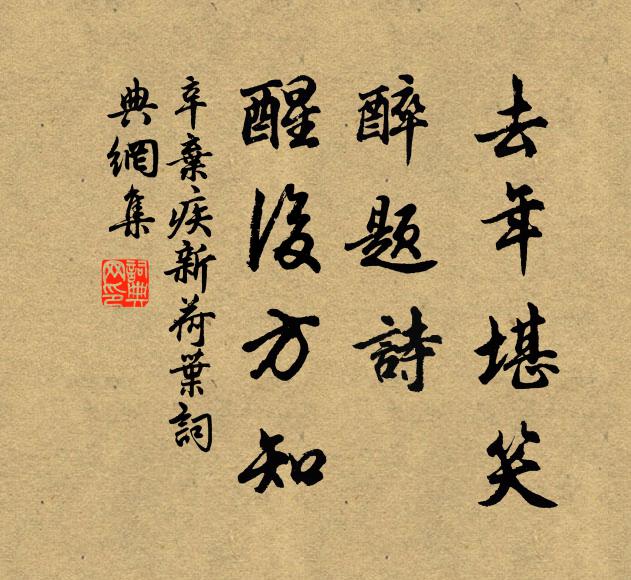 去年堪笑
醉題詩
醒後方知
辛棄疾新荷葉詞
典網集
詞典
网印